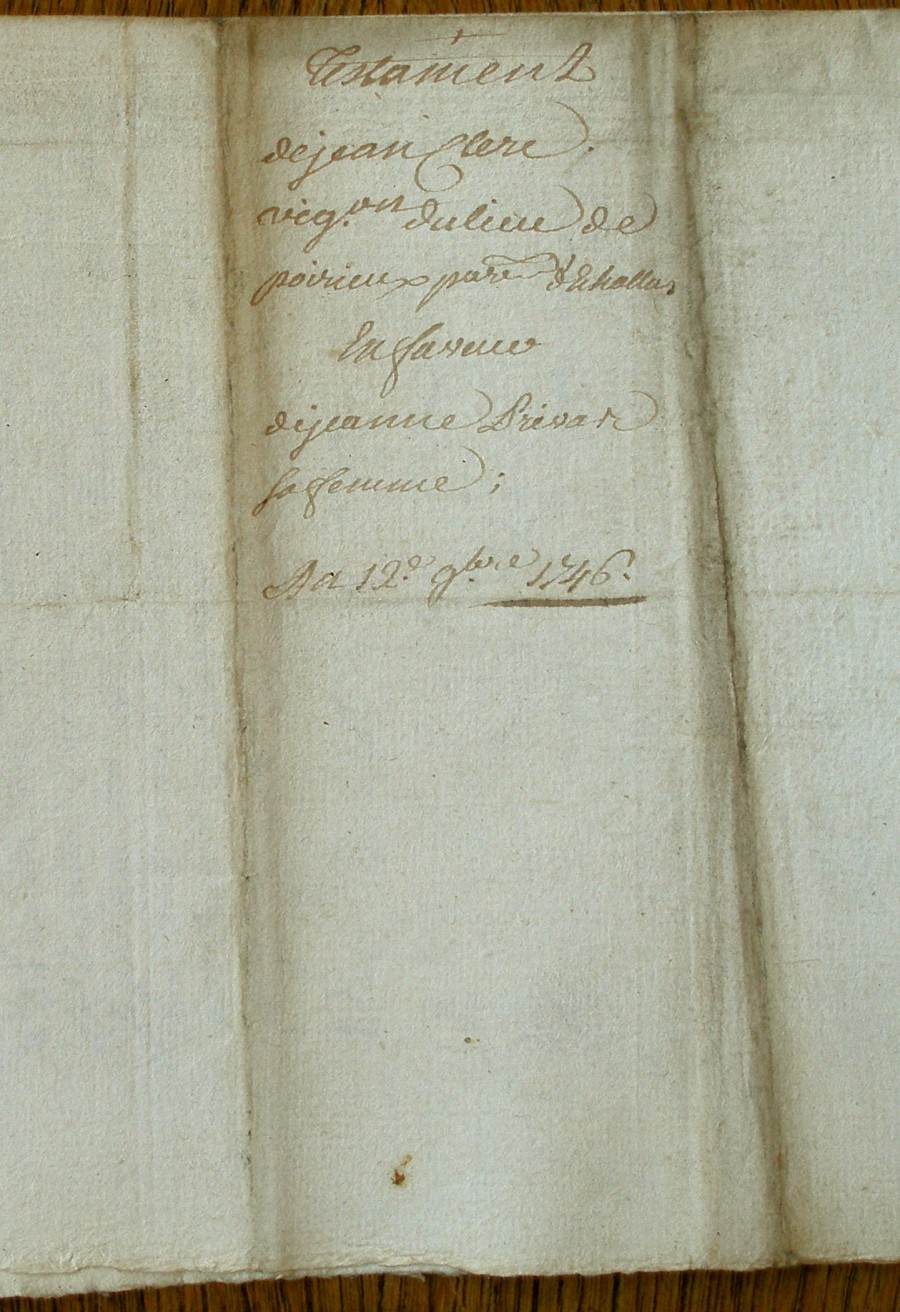 Testament
de jean Clerc.
vig.on du lieu de
poirieux par.e d'Echallas
En faveur
de jeanne Privat
sa femme;
Du 12.e 9.bre 1746.